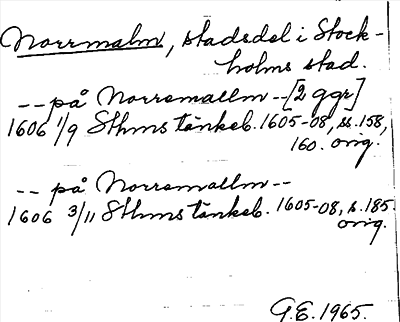 Norrmalm, stadsdel i Stock-
holms stad.
-- på Norremallm -- [2 ggr]
1606 1/9 Sthms tänkeb. 1605-08, ss. 158,
160. orig.
-- på Norremallm --
1606 3/11 Sthms tänkeb. 1605-08, s. 185.
orig.
G.E. 1965.